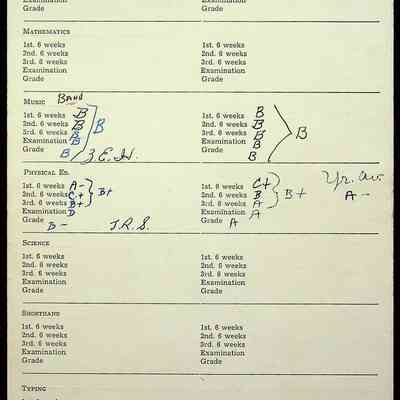 Examination Examination
Grade Grade
MATHEMATICS
1st. 6 weeks 1st. 6 weeks
2nd. 6 weeks 2nd. 6 weeks
3rd. 6 weeks 3rd. 6 weeks
Examination Examination
Grade Grade
MUSIC Band
1st. 6 weeks B 1st. 6 weeks B
2nd. 6 weeks B 2nd. 6 weeks B
3rd. 6 weeks B B 3rd. 6 weeks B B
Examination B Examination B
Grade B Z.E.H. Grade B
PHYSICAL ED.
1st. 6 weeks A- 1st. 6 weeks C+ Yr. av.
2nd. 6 weeks C+ B+ 2nd. 6 weeks B B+ A-
3rd. 6 weeks B+ 3rd. 6 weeks A
Examination D Examination A
Grade B- J.R.S. Grade A
SCIENCE
1st. 6 weeks 1st. 6 weeks
2nd. 6 weeks 2nd. 6 weeks
3rd. 6 weeks 3rd. 6 weeks
Examination Examination
Grade Grade
SHORTHAND
1st. 6 weeks 1st. 6 weeks
2nd. 6 weeks 2nd. 6 weeks
3rd. 6 weeks 3rd. 6 weeks
Examination Examination
Grade Grade
TYPING